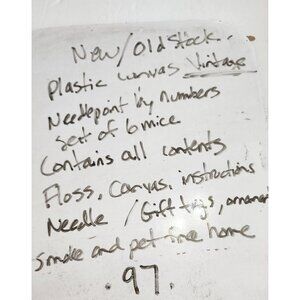 New/old stock.
Plastic canvas Vintage
Needlepoint by numbers
Set of 6 mice
Contains all contents
Floss, Canvas, instructions
Needle / Gift tags, ornament
smoke and pet free home
.97.